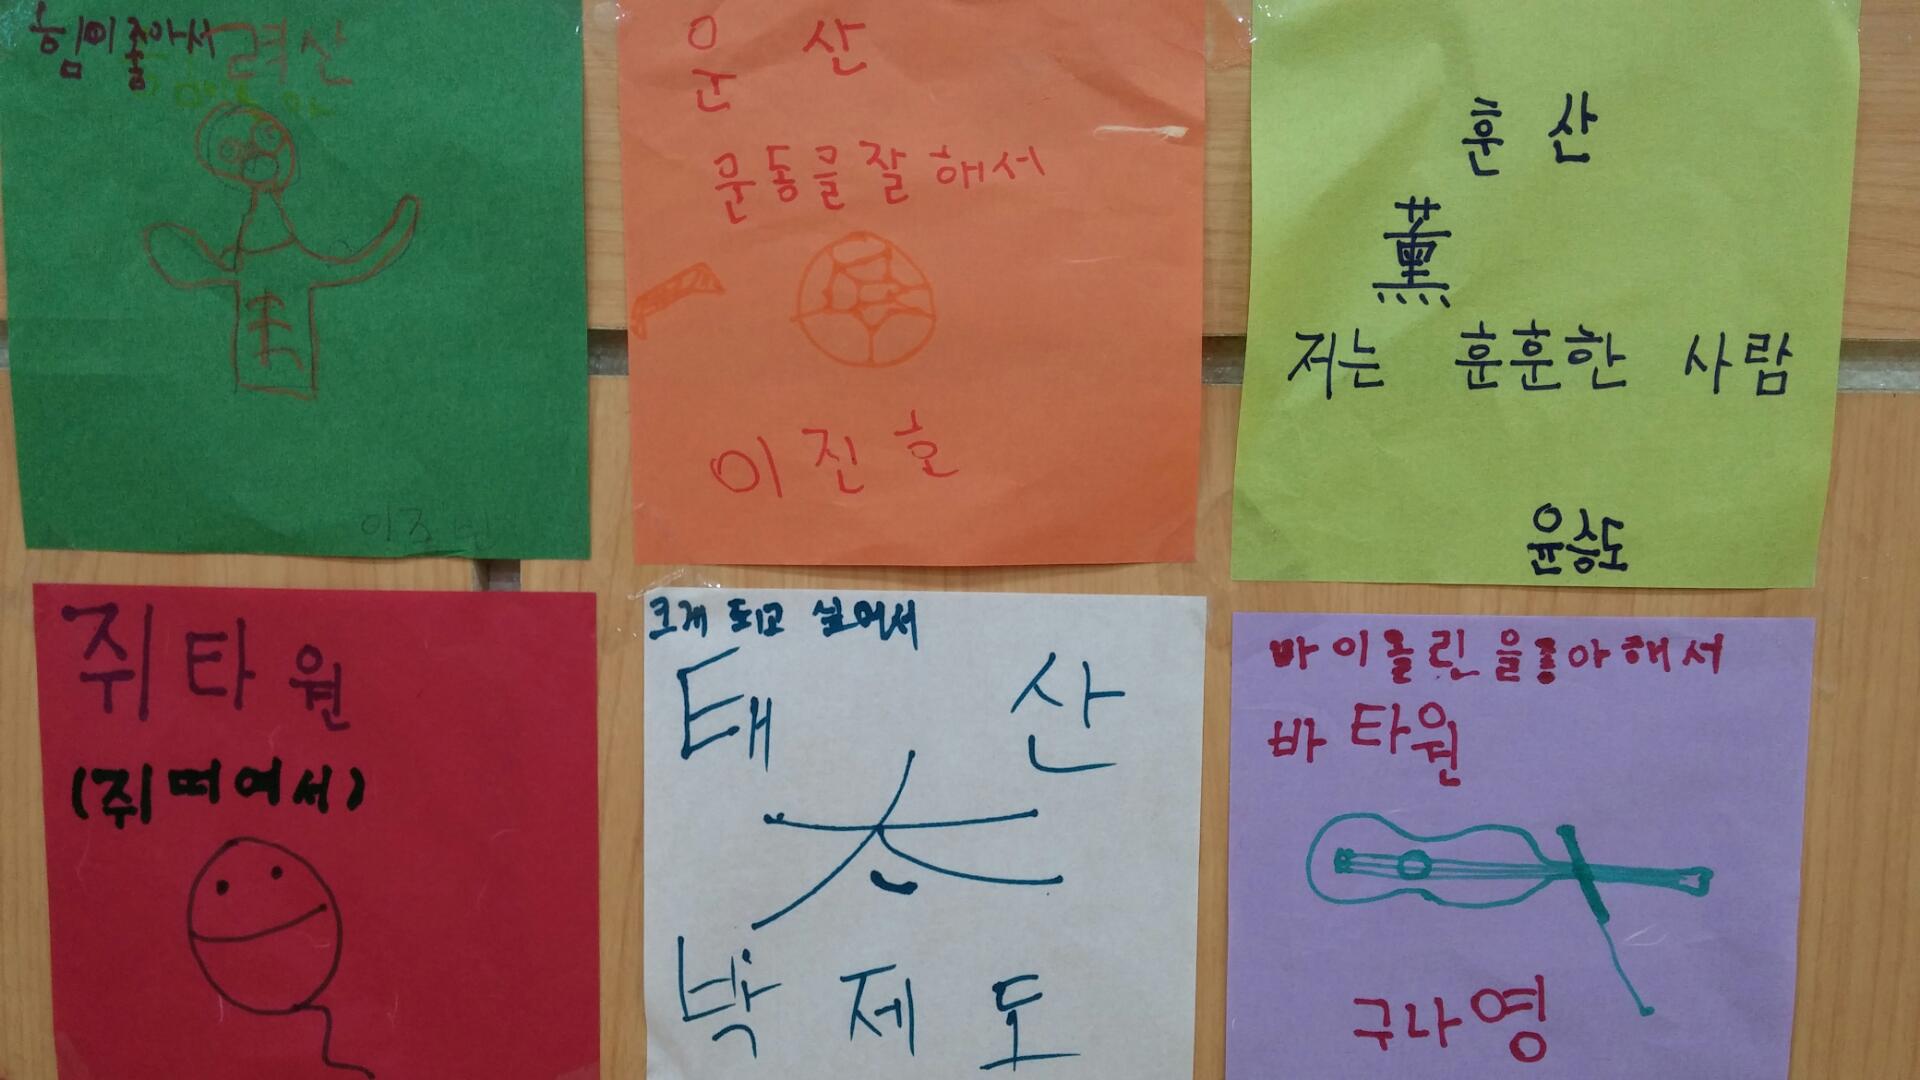 힘이좋아서 력산
운 산
운동을잘해서
이진호
훈 산
薰
저는 훈훈한 사람
윤승도
쥐타원
(쥐띠여서)
크게 되고 싶어서
태 산
太
박제도
바이올린을좋아해서
바타원
구나영